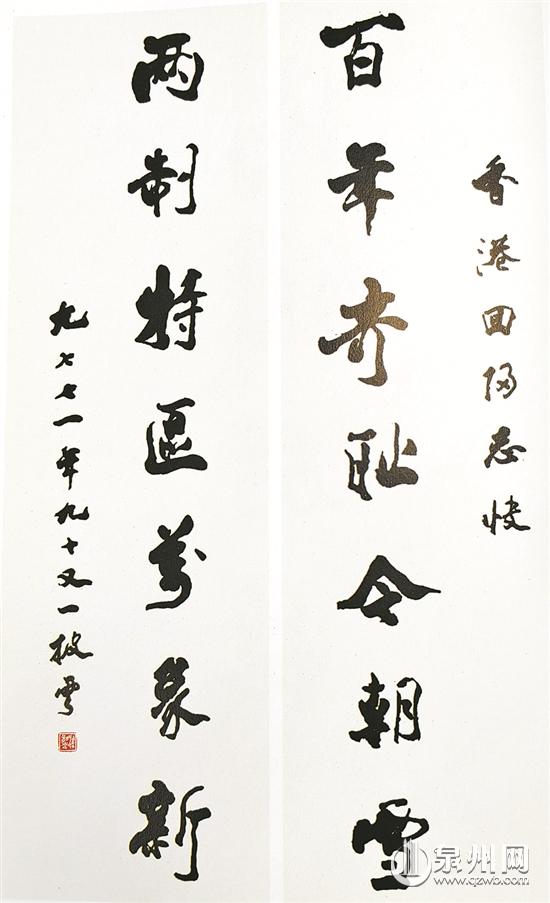 香港回归志快
百年奇耻今朝雪
兩制特區萬象新
九七七一年九十又一披雲
泉州网
www.qzwb.com